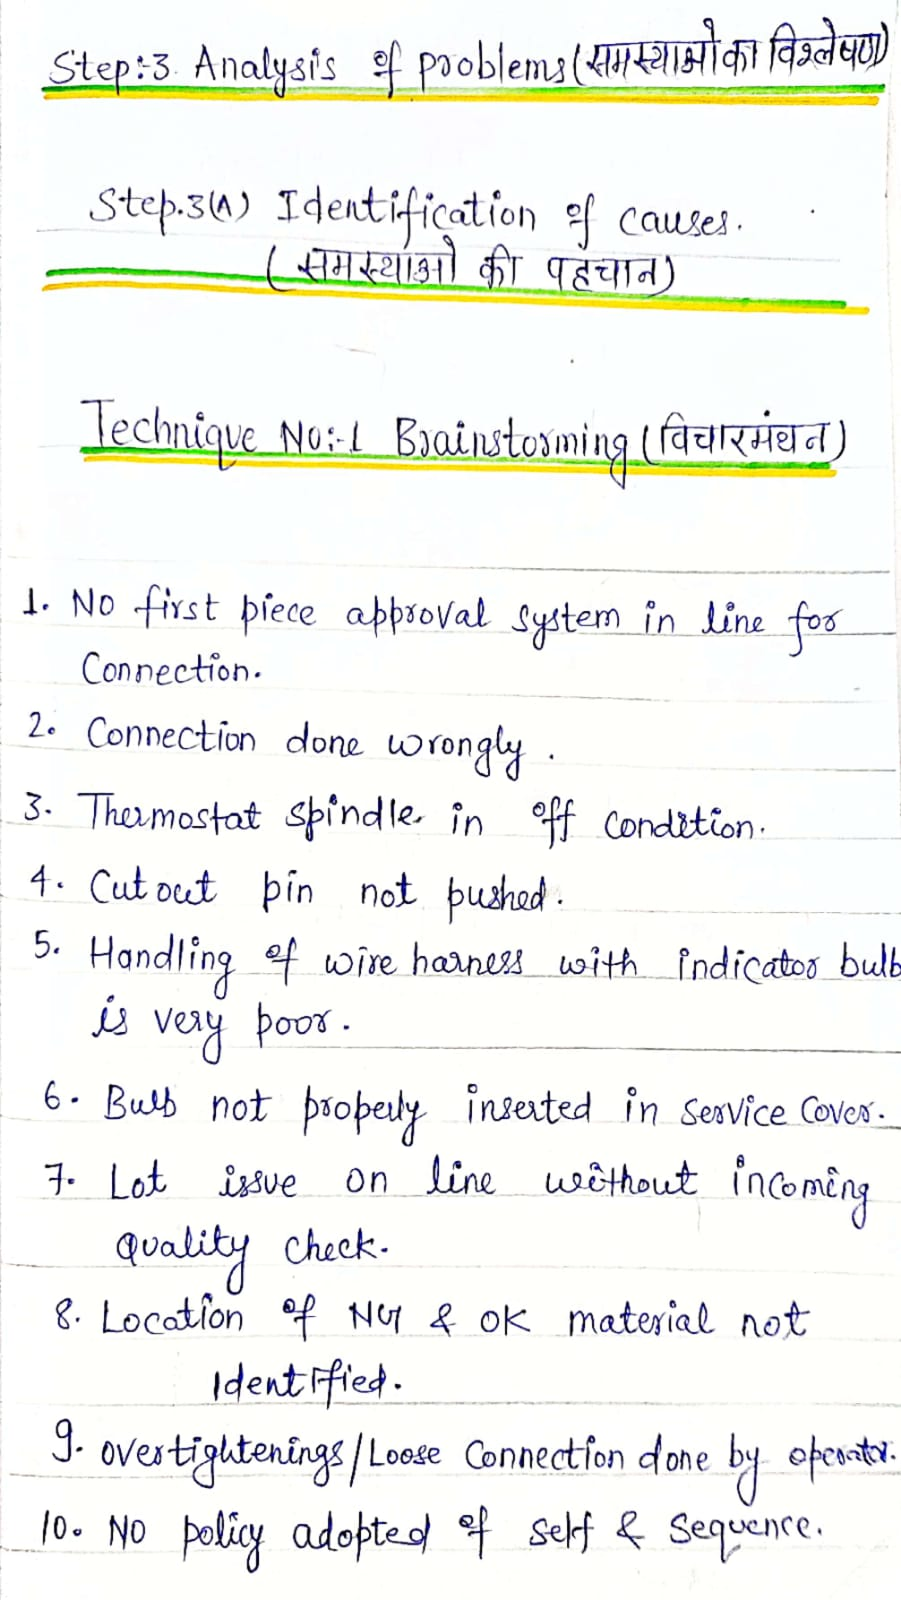 Step:3. Analysis of problems(समस्याओ का विश्लेषण)
Step.3(A) Identification of causes.
(समस्याओ की पहचान)
Technique No:-1 Brainstorming (विचारमंथन)
1. No first piece approval system in line for
Connection.
2. Connection done wrongly.
3. Thermostat spindle in off condition.
4. Cut out pin not pushed.
5. Handling of wire harness with indicator bulb
is very poor.
6. Bulb not properly inserted in Service Cover.
7. Lot issue on line without incoming
Quality Check.
8. Location of NG & OK material not
Identified.
9. overtightenings/Loose Connection done by operator.
10. No policy adopted of self & Sequence.